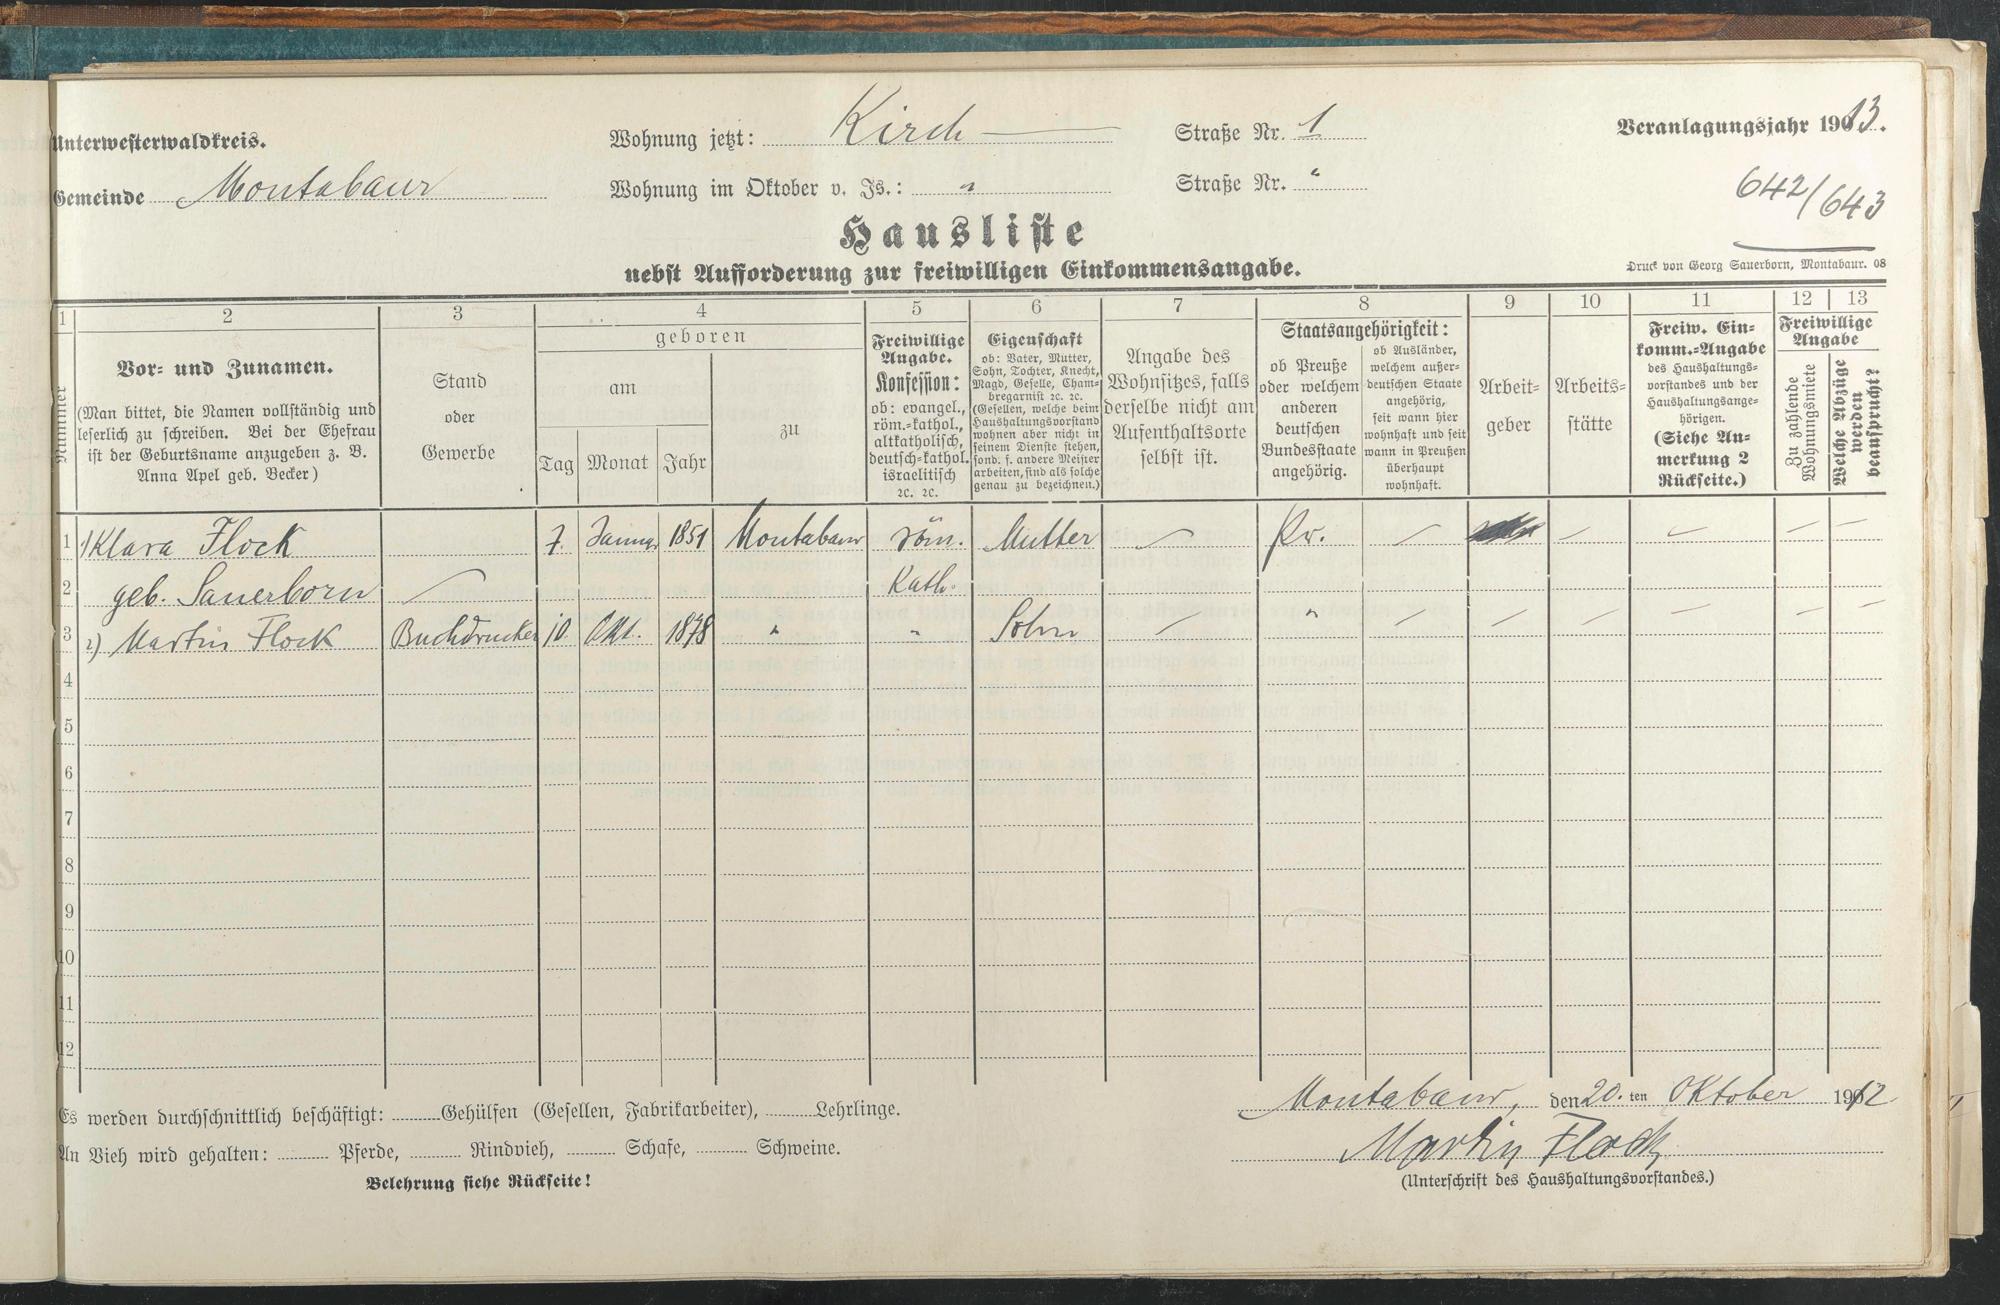 Unterwesterwaldkreis.
Wohnung jetzt: Kirch Straße Nr. 1
Veranlagungsjahr 1913.
Gemeinde Montabaur
Wohnung im Oktober v. Js.: " Straße Nr. "
642/643
Hausliste
nebst Aufforderung zur freiwilligen Einkommensangabe.
Druck von Georg Sauerborn, Montabaur. 08
1 2 3 4 5 6 7 8 9 10 11 12 13
Nummer
Vor- und Zunamen.
(Man bittet, die Namen vollständig und
leserlich zu schreiben. Bei der Ehefrau
ist der Geburtsname anzugeben z. B.
Anna Apel geb. Becker)
Stand
oder
Gewerbe
geboren
am
Tag Monat Jahr
zu
Freiwillige
Angabe.
Konfession:
ob: evangel.,
röm.-kathol.,
altkatholisch,
deutsch-kathol.
israelitisch
2c. 2c.
Eigenschaft
ob: Vater, Mutter,
Sohn, Tochter, Knecht,
Magd, Geselle, Cham-
bregarnist 2c. 2c.
(Gesellen, welche beim
Haushaltungsvorstand
wohnen aber nicht in
seinem Dienste stehen,
sond. f. andere Meister
arbeiten, sind als solche
genau zu bezeichnen.)
Angabe des
Wohnsitzes, falls
derselbe nicht am
Aufenthaltsorte
selbst ist.
Staatsangehörigkeit:
ob Preuße
oder welchem
anderen
deutschen
Bundesstaate
angehörig.
ob Ausländer,
welchem außer-
deutschen Staate
angehörig,
seit wann hier
wohnhaft und seit
wann in Preußen
überhaupt
wohnhaft.
Arbeit-
geber
Arbeits-
stätte
Freiw. Ein-
komm.-Angabe
des Haushaltungs-
vorstandes und der
Haushaltungsange-
hörigen.
(Siehe An-
merkung 2
Rückseite.)
Freiwillige
Angabe
Zu zahlende
Wohnungsmiete
Welche Abzüge
werden
beansprucht?
1 1) Klara Flock 7. Januar 1851 Montabaur röm. Mutter — Pr. — — — — —
2 geb. Sauerborn — Kath.
3 2) Martin Flock Buchdrucker 10. Okt. 1878 " " Sohn — " — — — — — —
4
5
6
7
8
9
10
11
12
Montabaur, den 20.ten Oktober 1912
Es werden durchschnittlich beschäftigt: Gehülfen (Gesellen, Fabrikarbeiter), Lehrlinge.
An Vieh wird gehalten: Pferde, Rindvieh, Schafe, Schweine.
Martin Flock
Belehrung siehe Rückseite!
(Unterschrift des Haushaltungsvorstandes.)